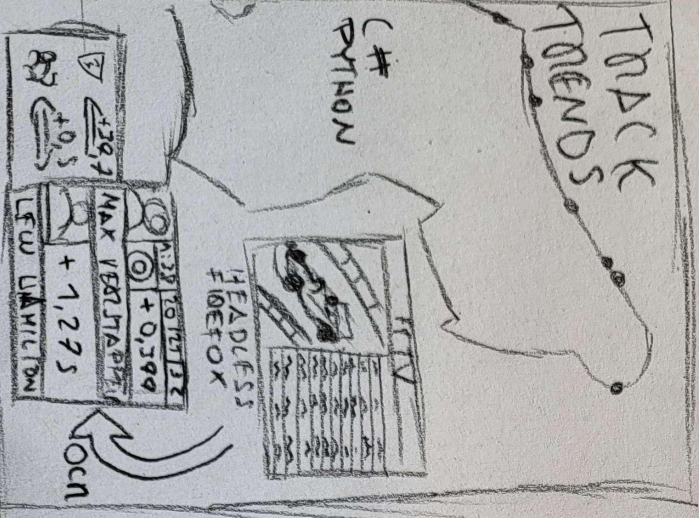 TRACK
TRENDS
C#
PYTHON
F1TV
HEADLESS
FIREFOX
OCR
+29,7
+0,5
+0,399
MAX VERSTAPPEN
+1,275
LEW HAMILTON